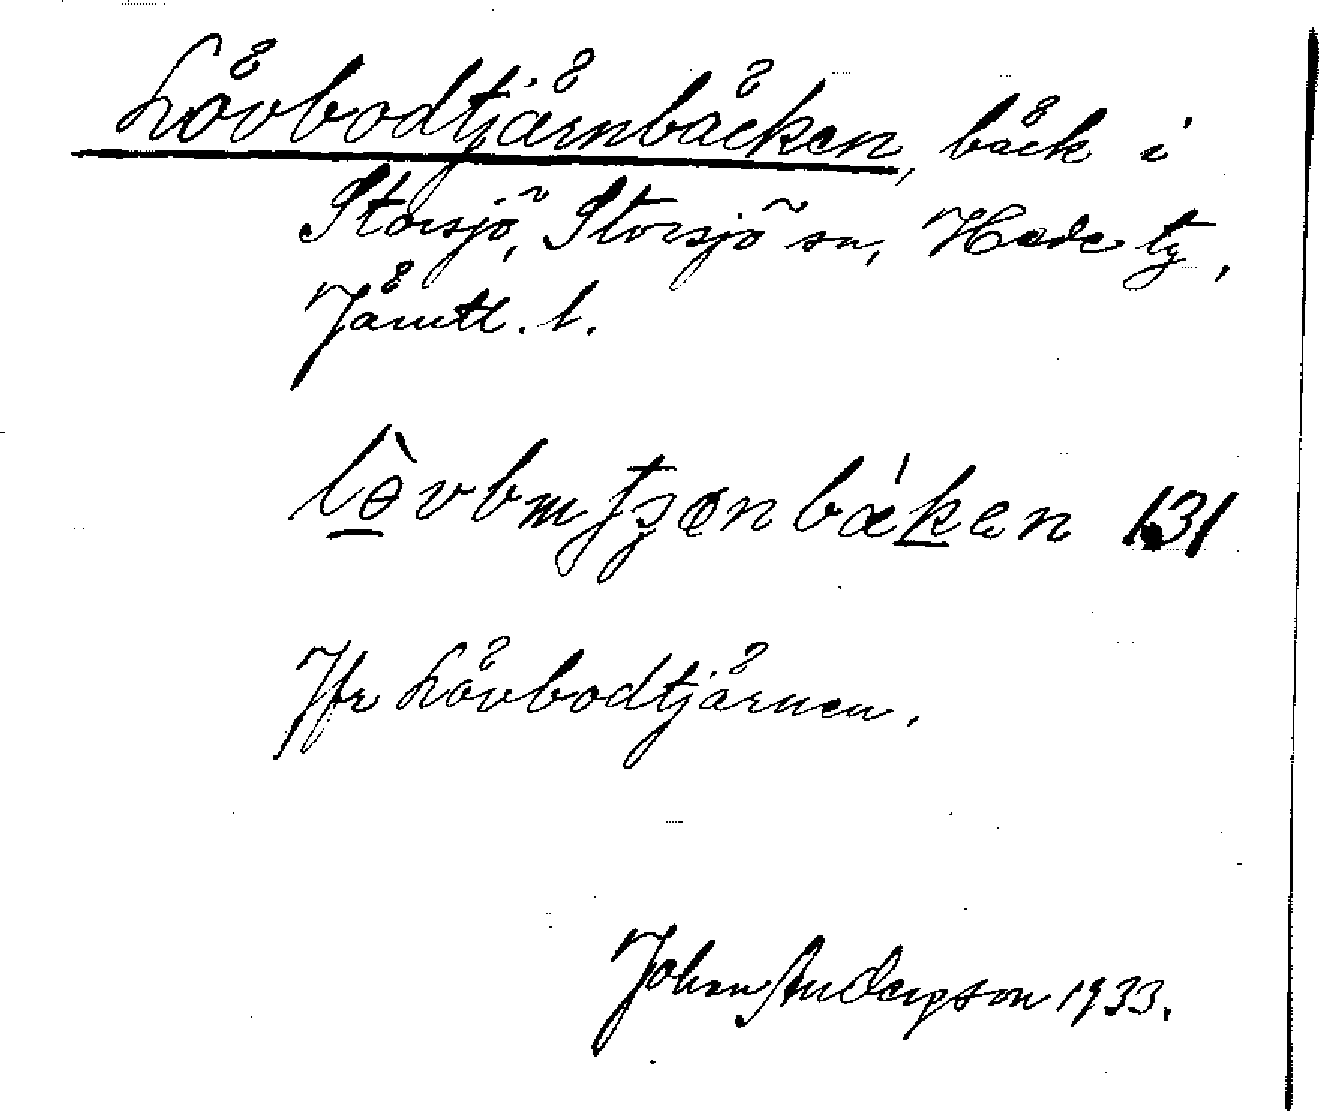 Lövbodtjärnbäcken, bäck i
Storsjö, Storsjö sn, Hede tg,
Jämtl. l.
131
Jfr Lövbodtjärnen.
Johan Andersson 1933.